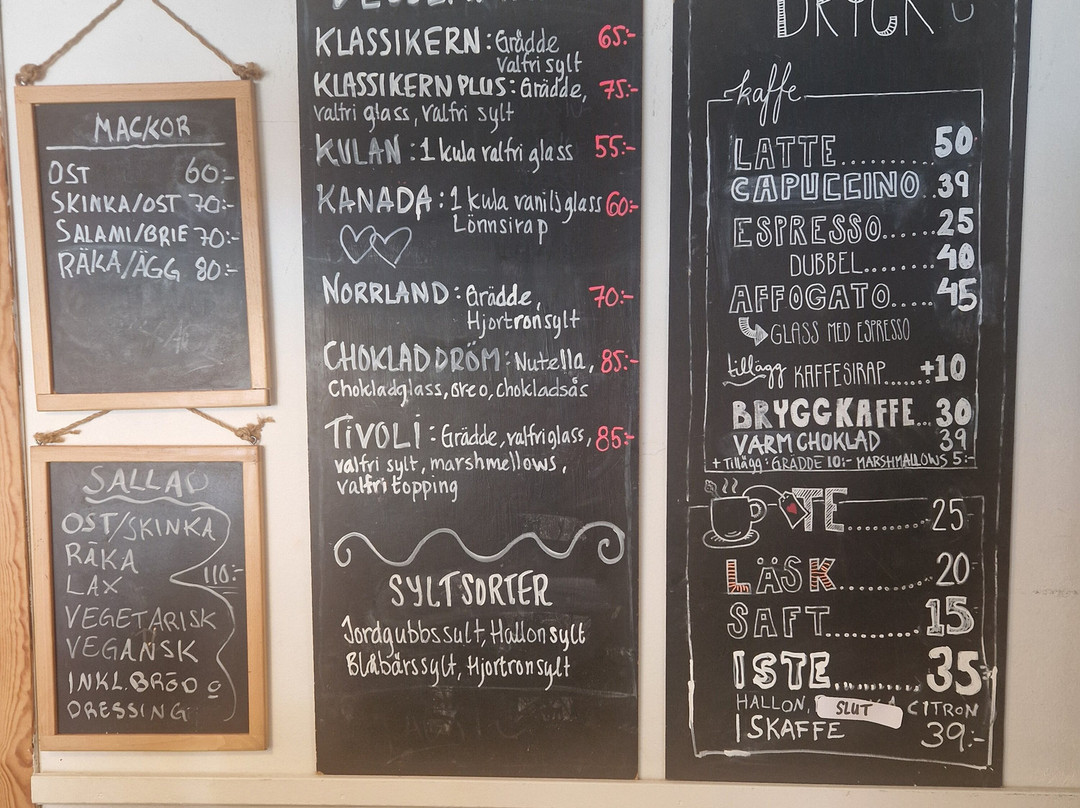 MACKOR
OST 60:-
SKINKA/OST 70:-
SALAMI/BRIE 70:-
RÄKA/ÄGG 80:-
SALLAD
OST/SKINKA
RÄKA
LAX 110:-
VEGETARISK
VEGANSK
INKL.BRÖD o
DRESSING
KLASSIKERN: Grädde 65:-
valfri sylt
KLASSIKERN PLUS: Grädde, 75:-
valfri glass, valfri sylt
KULAN: 1 kula valfri glass 55:-
KANADA: 1 kula vaniljglass 60:-
Lönnsirap
NORRLAND: Grädde, 70:-
Hjortronsylt
CHOKLAD DRÖM: Nutella, 85:-
Chokladglass, oreo, chokladsås
TIVOLI: Grädde, valfri glass, 85:-
valfri sylt, marshmellows,
valfri topping
SYLTSORTER
Jordgubbssult, Hallonsylt
Blåbärssylt, Hjortronsylt
DRYCK
kaffe
LATTE........ 50
CAPUCCINO.. 39
ESPRESSO..... 25
DUBBEL........ 40
AFFOGATO..... 45
GLASS MED ESPRESSO
tillägg KAFFESIRAP......+10
BRYGGKAFFE... 30
VARM CHOKLAD 39
+ Tillägg: GRÄDDE 10:- MARSHMALLOWS 5:-
TE......... 25
LÄSK......... 20
SAFT.......... 15
ISTE......... 35
HALLON, SLUT CITRON
ISKAFFE 39:-